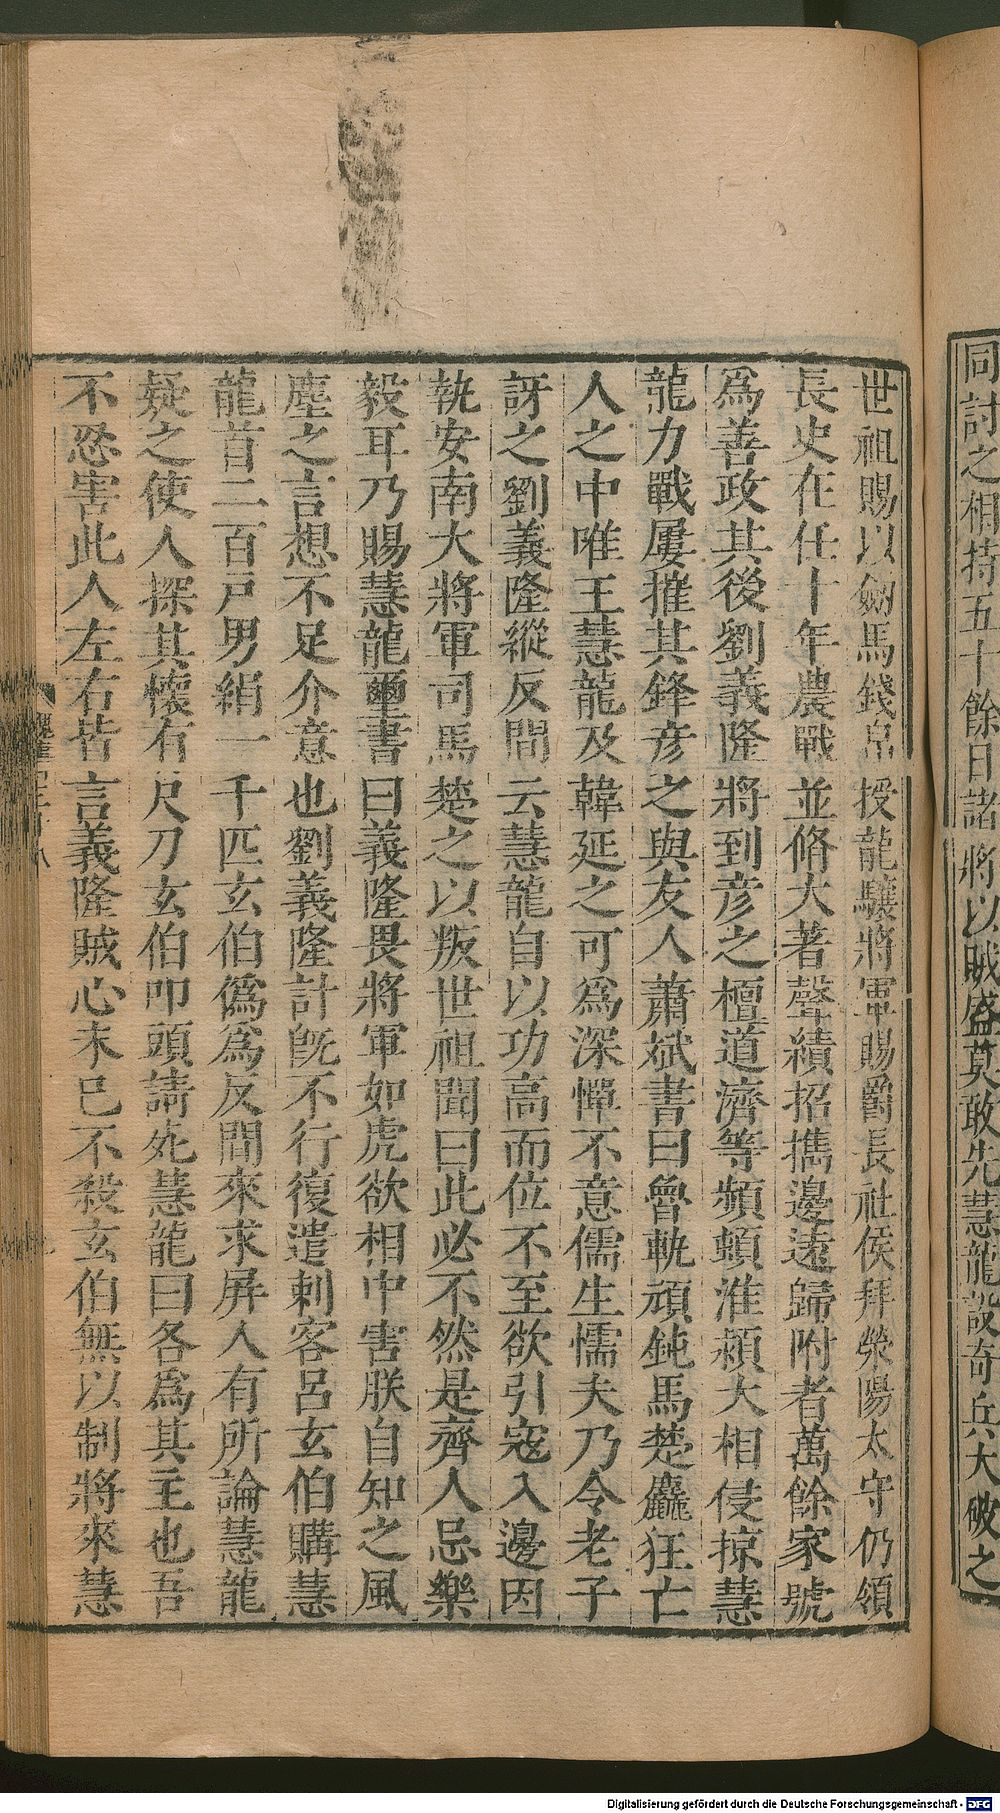 同討之相持五十餘日諸將以賊盛莫敢先慧龍設奇兵大破之
世祖賜以劒馬錢帛授龍驤將軍賜爵長社侯拜滎陽太守仍領
長史在任十年農戰並脩大著聲績招擕邊遠歸附者萬餘家號
爲善政其後劉義隆將到彥之檀道濟等頻頓淮潁大相侵掠慧
龍力戰屢摧其鋒彥之與友人蕭斌書曰魯軌頑鈍馬楚麤狂亡
人之中唯王慧龍及韓延之可爲深憚不意儒生懦夫乃令老子
訝之劉義隆縱反間云慧龍自以功高而位不至欲引寇入邊因
執安南大將軍司馬楚之以叛世祖聞曰此必不然是齊人忌樂
毅耳乃賜慧龍璽書曰義隆畏將軍如虎欲相中害朕自知之風
塵之言想不足介意也劉義隆計旣不行復遣刺客呂玄伯購慧
龍首二百戸男絹一千匹玄伯僞爲反間來求屏人有所論慧龍
疑之使人探其懷有尺刀玄伯叩頭請死慧龍曰各爲其主也吾
不忍害此人左右皆言義隆賊心未已不殺玄伯無以制將來慧
Digitalisierung gefördert durch die Deutsche Forschungsgemeinschaft - DFG